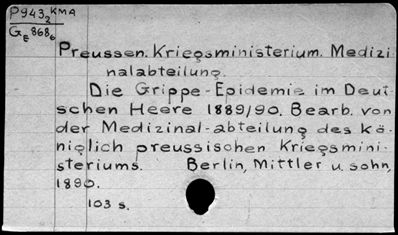 P943₂ KMA
GE868₆
Preussen. Kriegsministerium. Medizi
nalabteilung.
Die Grippe-Epidemie im Deut
schen Heere 1889/90. Bearb. von
der Medizinal-abteilung des kö-
niglich preussischen Kriegsmini-
steriums. Berlin, Mittler u. sohn,
1890.
103 s.